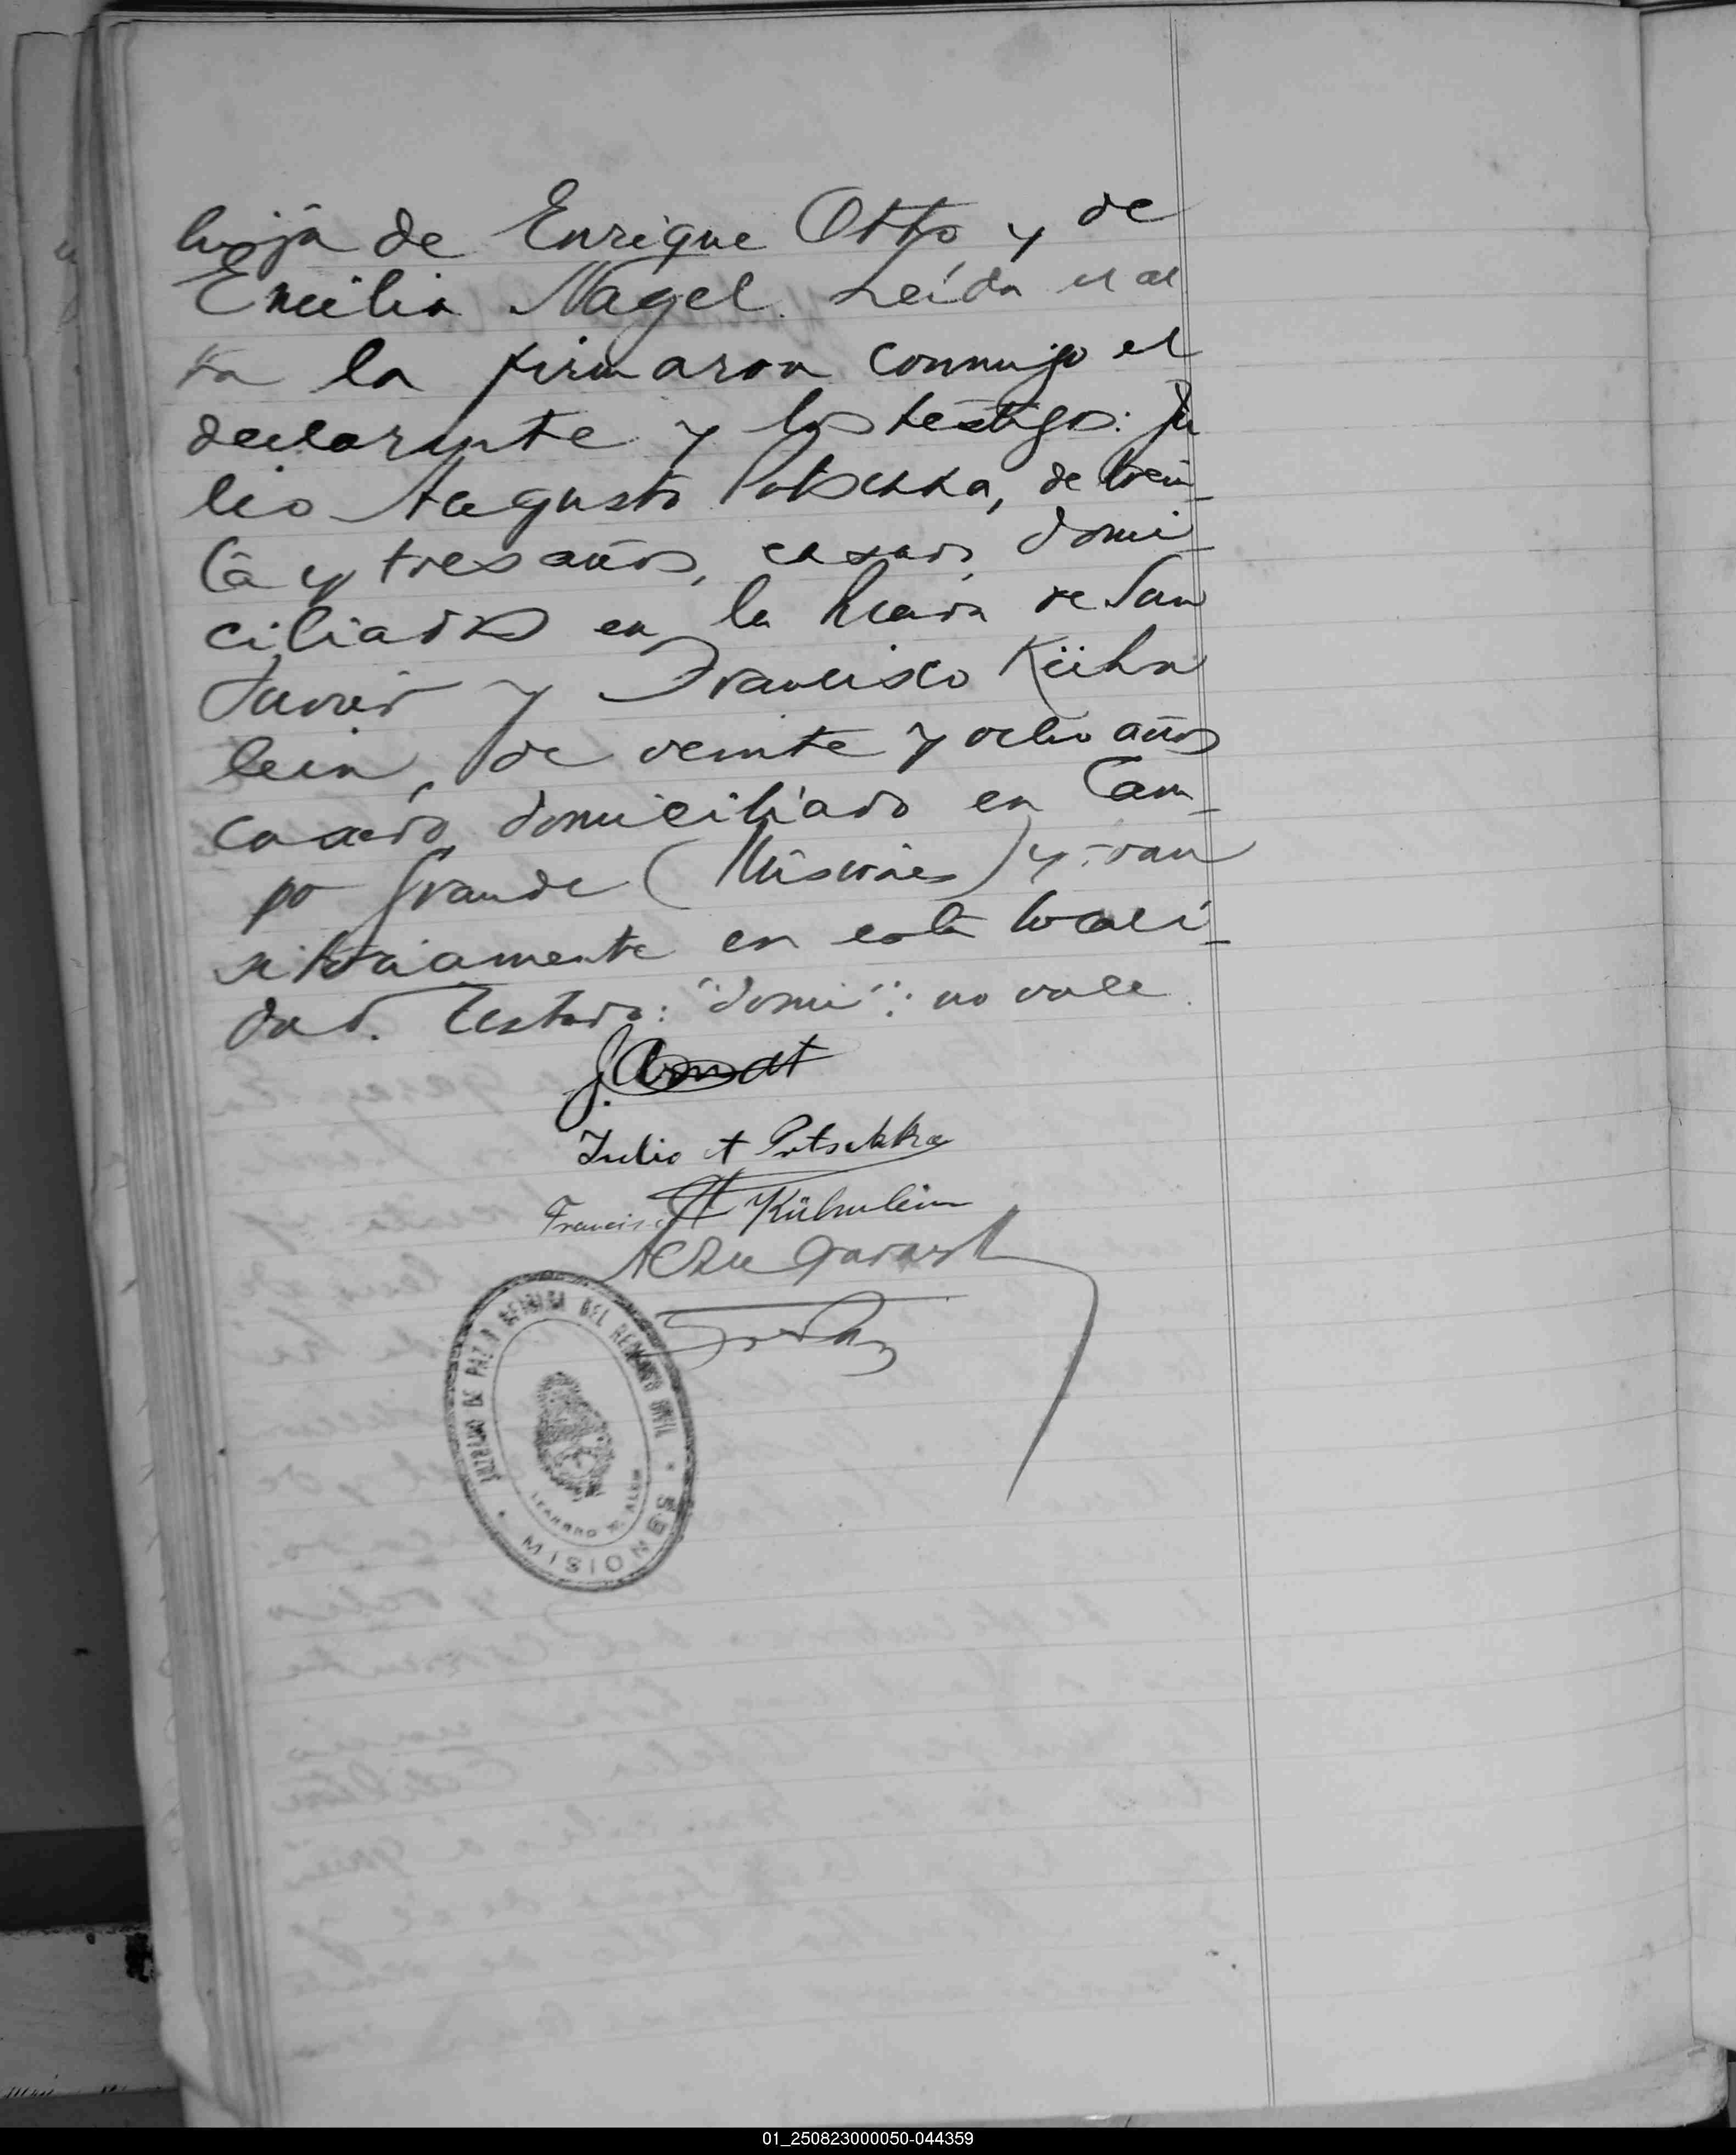 hija de Enrique Otto y de
Emilia Nagel. Leída el ac
ta la firmaron conmigo el
declarante y los testigos: Ju
lio Augusto Putschka, de trein_
ta y tres años, casado, domi_
ciliado en la Picada de San
Javier y Francisco Kühn
lein, de veinte y ocho años
casado, domiciliado en Cam_
po Grande (Misiones) y tran
sitoriamente en esta locali_
dad. Testado: "domi": no vale.
J. Arndt
Julio A Putschka
Francisco Kühnlein
JUZGADO DE PAZ Y OFICINA DEL REGISTRO CIVIL
LEANDRO N. ALEM
MISIONES
01_250823000050-044359